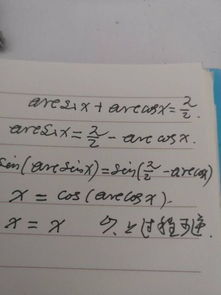 arcsinx + arccosx = π/2
arcsinx = π/2 - arccosx.
sin(arcsinx) = sin(π/2 - arccosx)
x = cos(arccosx).
x = x 以上过程可逆